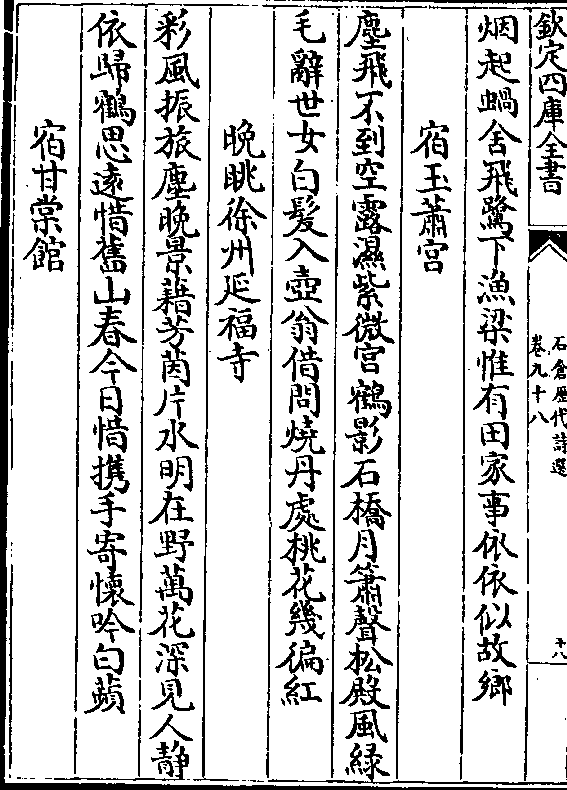 欽定四庫全書
石倉歷代詩選
卷九十八
十八
烟起蝸舍飛鷺下漁梁惟有田家事依依似故鄉
宿玉蕭宮
塵飛不到空露濕紫微宮鶴影石橋月簫聲松殿風綠
毛辭世女白髮入壺翁借問燒丹處桃花幾徧紅
晚眺徐州延福寺
彩風振旅塵晚景藉芳茵片水明在野萬花深見人静
依歸鶴思遠惜舊山春今日惜攜手寄懷吟白蘋
宿甘棠館